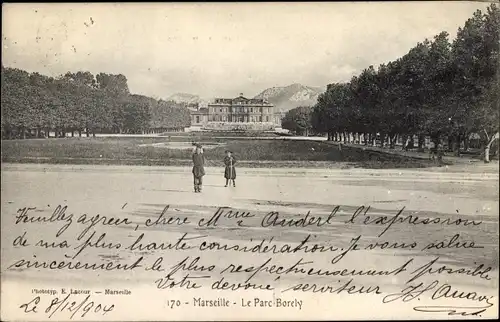 Veuillez agréer, chère Mme Auderl l'expression
de ma plus haute considération. Je vous salue
sincèrement le plus respectueusement possible
Votre devoué serviteur H. Canavy
170 - Marseille - Le Parc Borély
Phototyp. E. Lacour - Marseille
Le 8/12/904